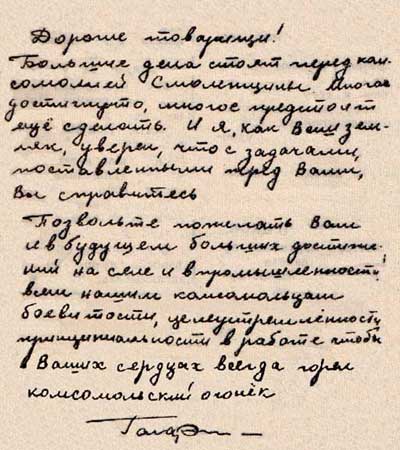 Дорогие товарищи!
Большие дела стоят перед ком-
сомолией Смоленщины. Многое
достигнуто, многое предстоит
ещё сделать. И я, как Ваш зем-
ляк, уверен, что с задачами,
поставленными перед Вами,
Вы справитесь
Позвольте пожелать Вам
и в будущем больших достиже-
ний на селе и в промышленности,
всем нашим комсомольцам
боевитости, целеустремлённости,
принципиальности в работе чтобы
Ваших сердцах всегда горел
комсомольский огонёк
Гагарин